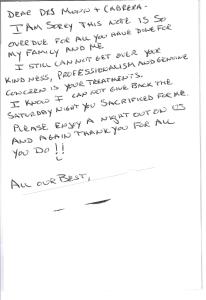 DEAR DRS MOON + CABRERA -
I AM SORRY THIS NOTE IS SO
OVERDUE FOR ALL YOU HAVE DONE FOR
MY FAMILY AND ME.
I STILL CAN NOT GET OVER YOUR
KINDNESS, PROFESSIONALISM AND GENUINE
CONCERN IS YOUR TREATMENTS.
I KNOW I CAN NOT GIVE BACK THE
SATURDAY NIGHT YOU SACRIFICED FOR ME.
PLEASE ENJOY A NIGHT OUT ON US
AND AGAIN THANK YOU FOR ALL
YOU DO!!
ALL OUR BEST,